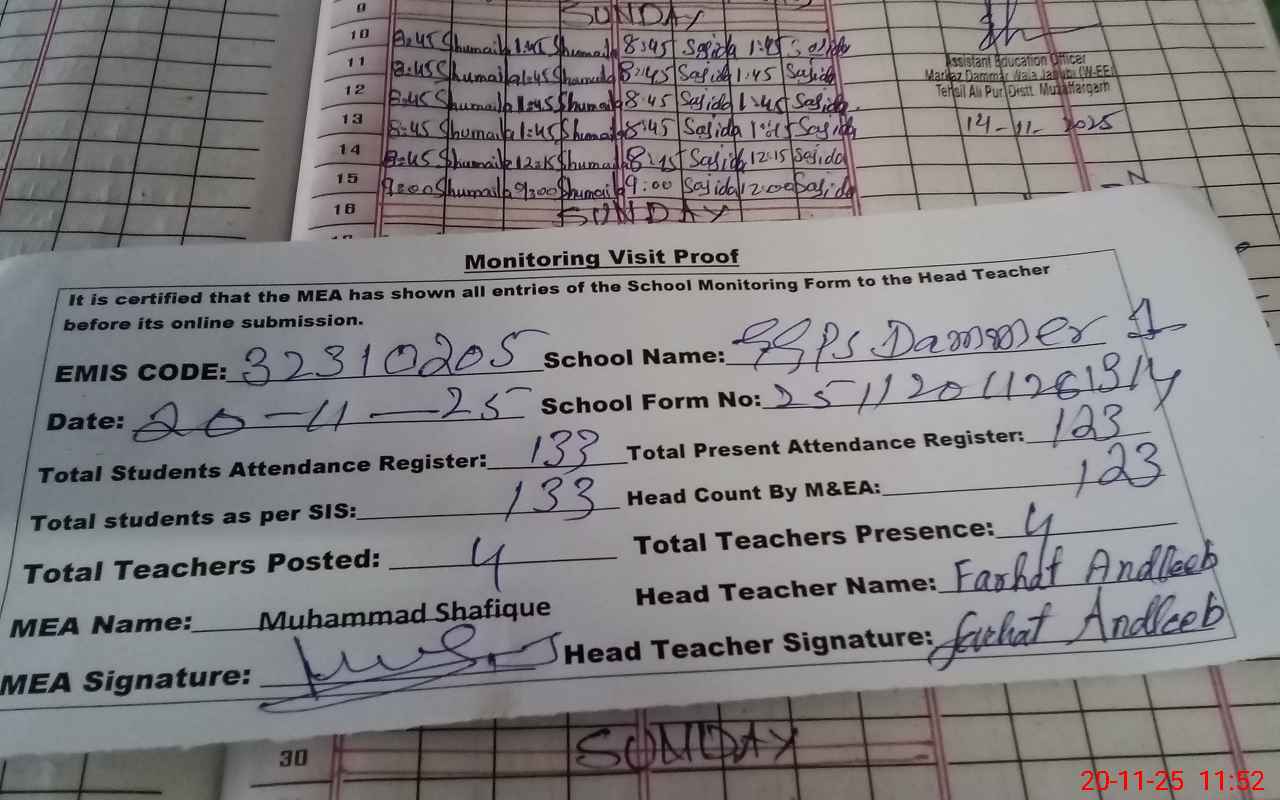 9 SUNDAY
10 8:45 Shumaila 1:45 Shumaila 8:45 Sajida 1:45 Sajida
11 8:45 Shumaila 1:45 Shumaila 8:45 Sajida 1:45 Sajida
12 8:45 Shumaila 1:45 Shumaila 8:45 Sajida 1:45 Sajida
13 8:45 Shumaila 1:45 Shumaila 8:45 Sajida 1:45 Sajida
14 8:45 Shumaila 12:15 Shumaila 8:45 Sajida 12:15 Sajida
15 9:00 Shumaila Shumaila 9:00 Sajida 12:00 Sajida
16 SUNDAY
Assistant Education Officer
Markaz Dammar Wala Janubi (W-EE)
Tehsil Ali Pur Distt. Muzaffargarh
14-11-2025
Monitoring Visit Proof
It is certified that the MEA has shown all entries of the School Monitoring Form to the Head Teacher
before its online submission.
EMIS CODE: 32310205 School Name: GGPS Dammer 1
Date: 20-11-25 School Form No:
Total Students Attendance Register: 133 Total Present Attendance Register: 123
Total students as per SIS: 133 Head Count By M&EA: 123
Total Teachers Posted: 4 Total Teachers Presence: 4
MEA Name: Muhammad Shafique Head Teacher Name: Farhat Andleeb
MEA Signature: Head Teacher Signature: farhat Andleeb
30 SUNDAY
20-11-25 11:52